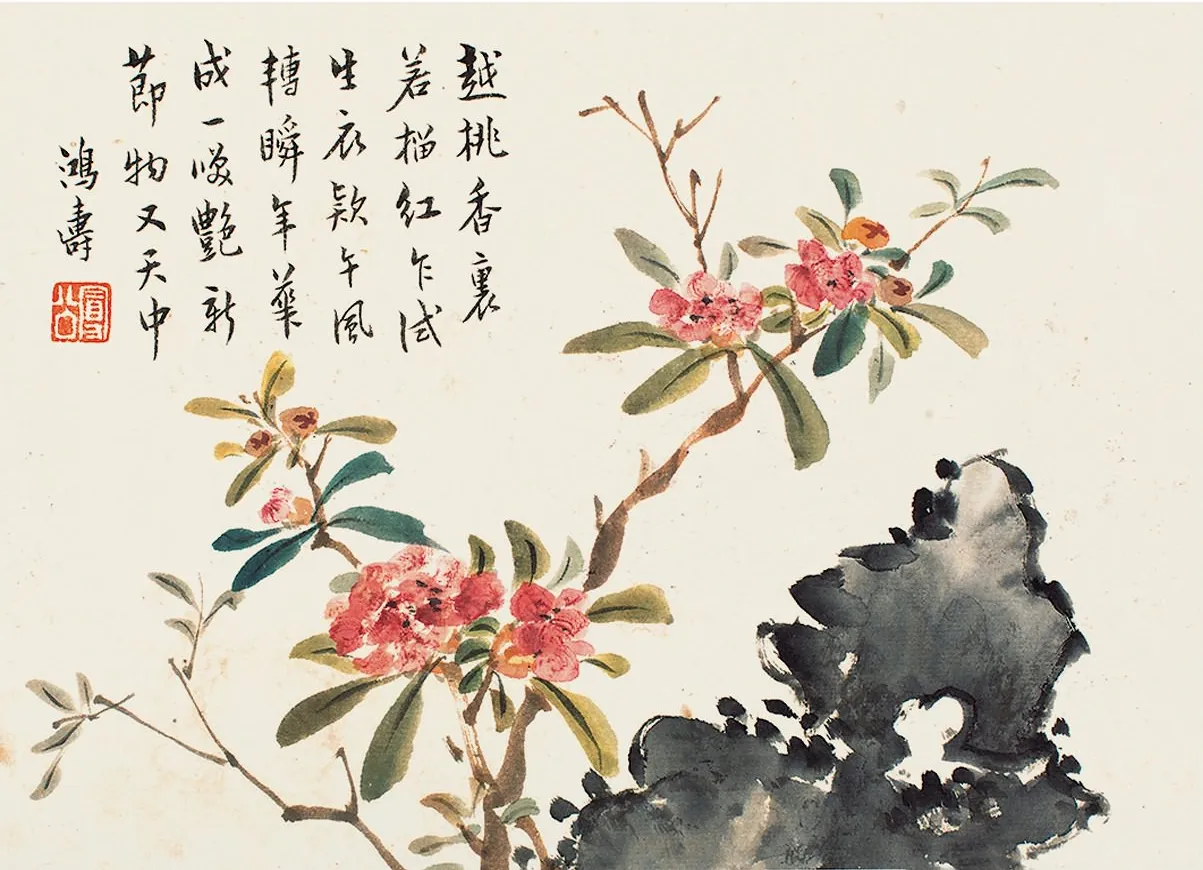 越桃香裏
若榴紅乍試
生衣欵午風
轉瞬年華
成一艷新
節物又天中
鴻壽
曼公